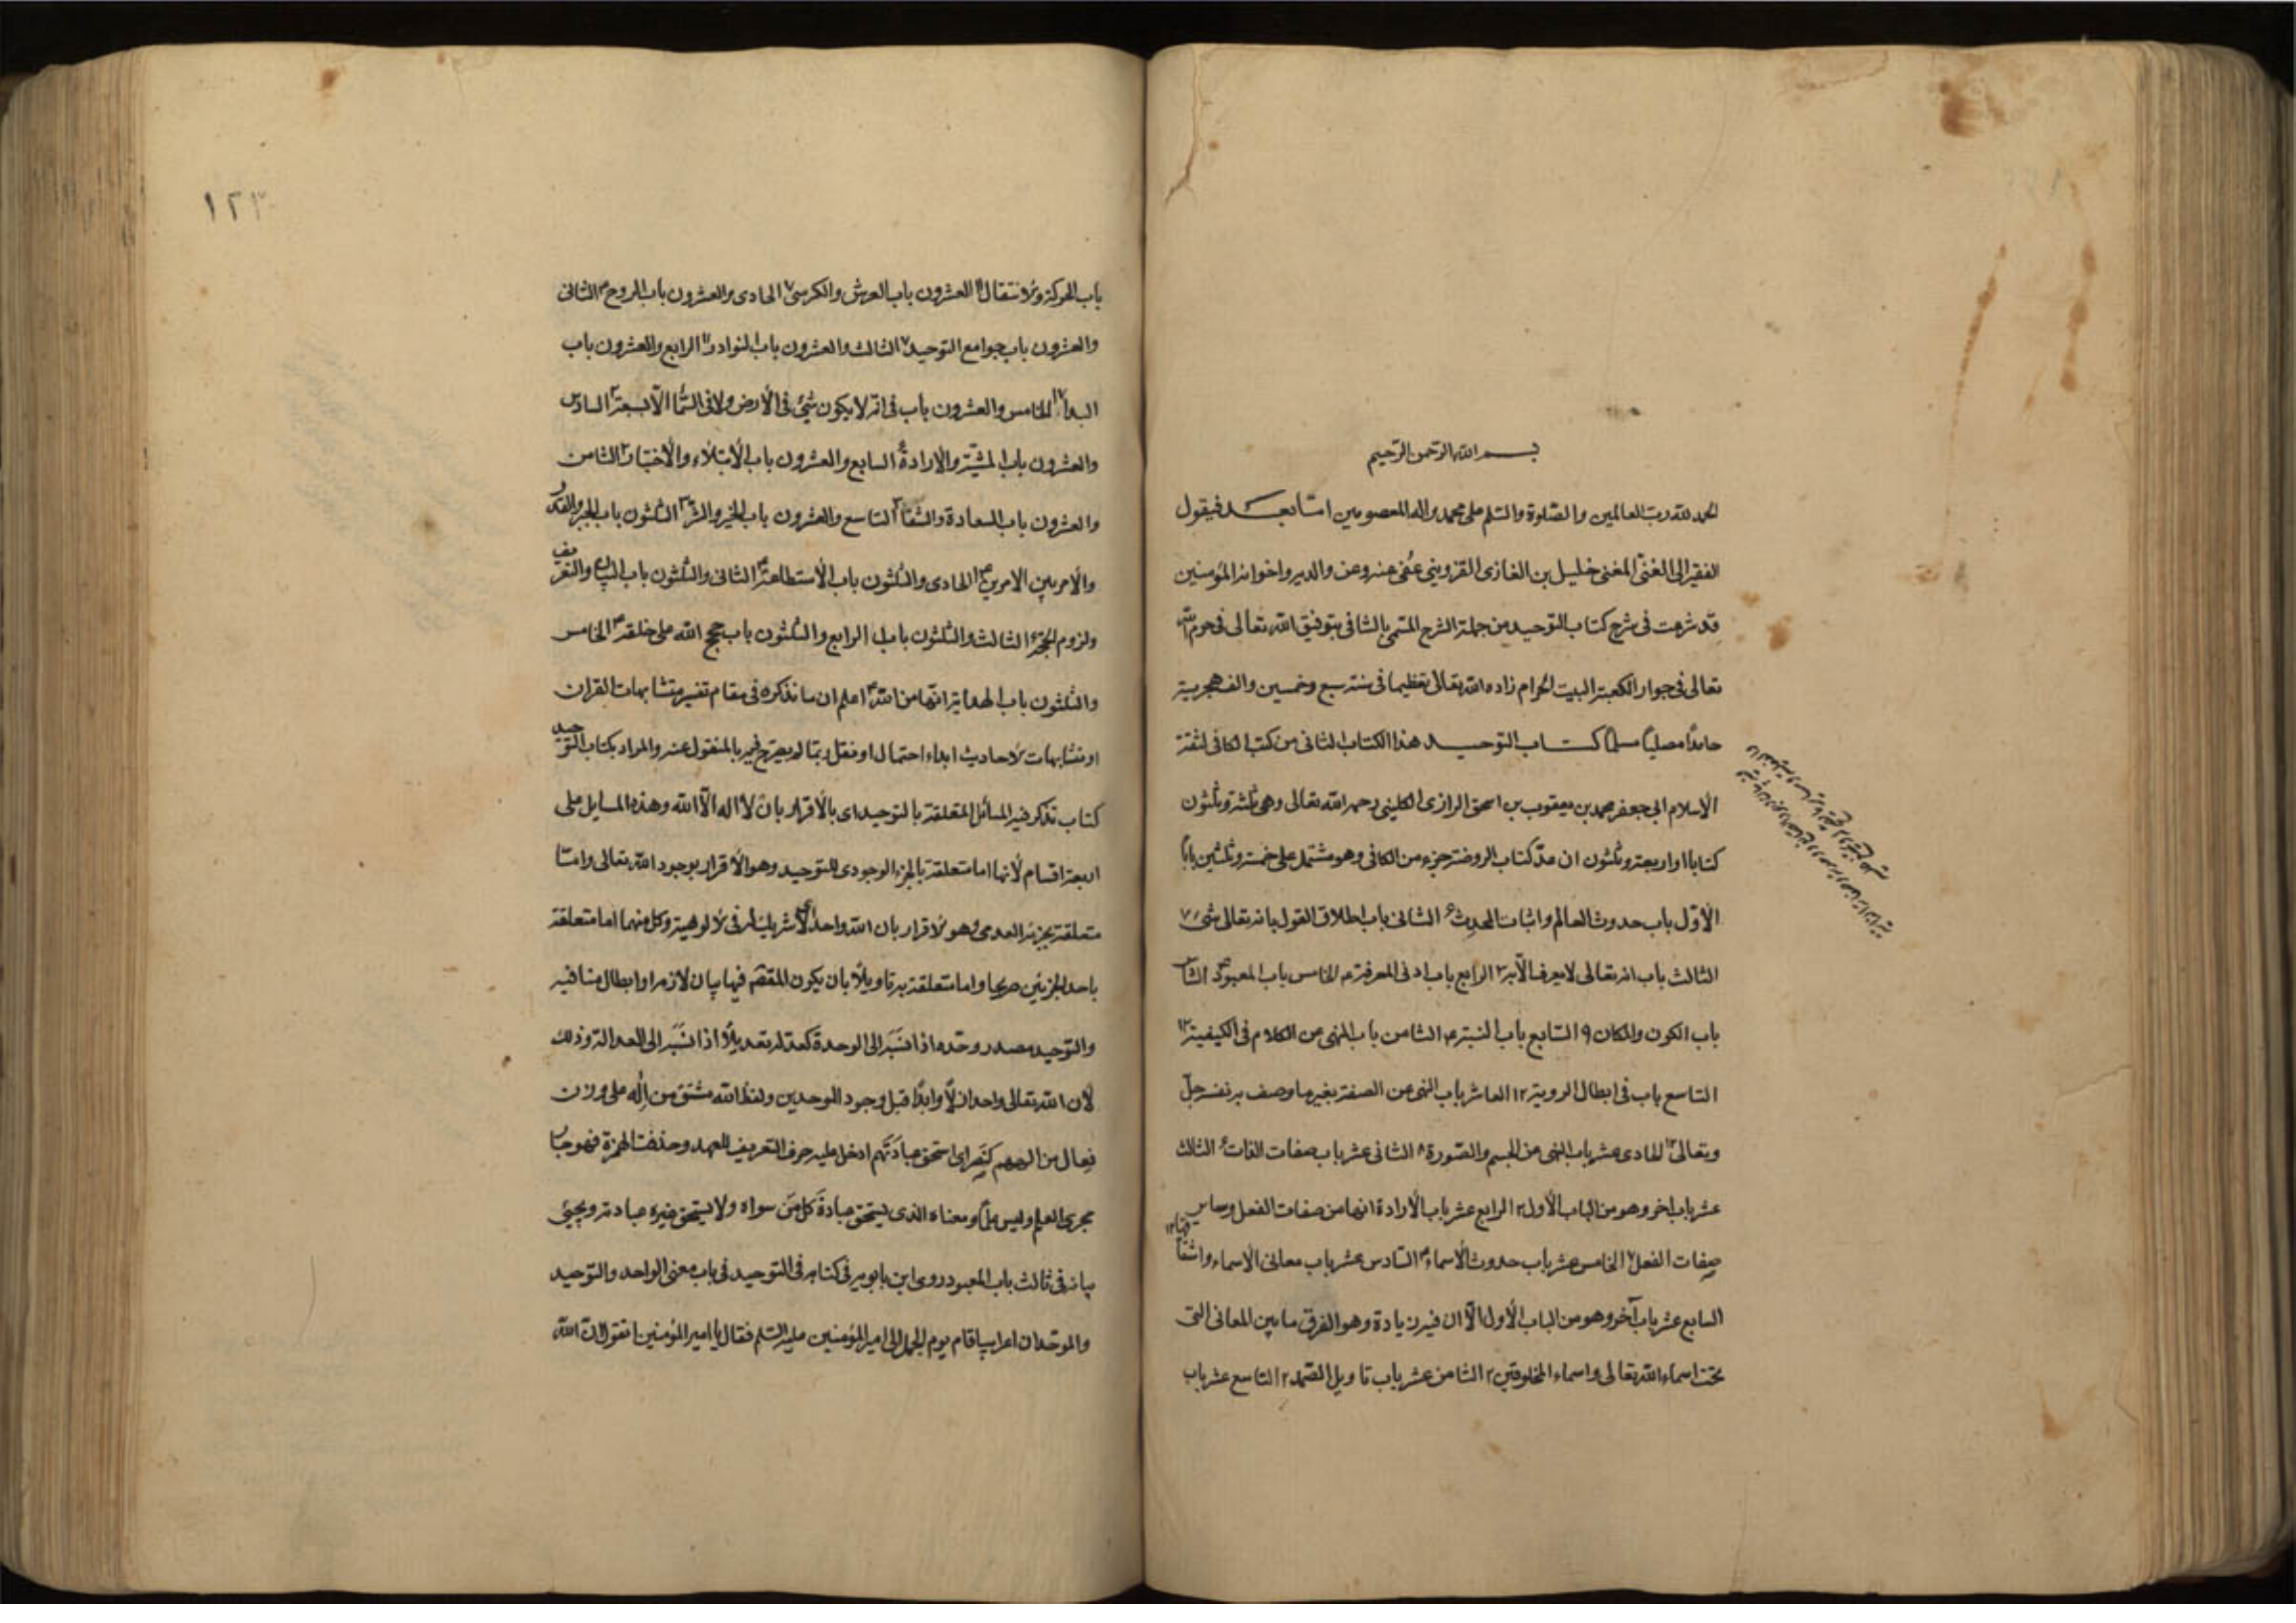 بسم الله الرحمن الرحيم
الحمد لله رب العالمين والصلوة والسلم على محمد واله المعصومين امّا بعد فيقول
الفقير الى الغنى المغنى خليل بن الغازى القزوينى عُفى عنه وعن والديه واخوانه المؤمنين
قد شرعت فى شرح كتاب التوحيد من جملة الشرح المسمى بالشافى بتوفيق الله تعالى فى حرم الله
تعالى فى جوار الكعبة البيت الحرام زاده الله تعالى تعظيما فى سنة سبع وخمسين والف هجرية
حامدًا مصليًا مسلمًا كتاب التوحيد هذا الكتاب الثانى من كتب الكافى لثقة
الاسلام ابى جعفر محمد بن يعقوب بن اسحق الرازى الكلينى رحمه الله تعالى وهى ثلثة وثلثون
كتابا او اربعة وثلثون ان عدّ كتاب الروضة جزء من الكافى وهو مشتمل على خمسة وثلثين بابًا
الأوّل باب حدوث العالم واثبات المحدِث ٤ الثانى باب اطلاق القول بانه تعالى شىء ٧
الثالث باب انه تعالى لا يعرف الّا به ٣ الرابع باب ادنى المعرفة ٣ الخامس باب المعبود ٣ السادس
باب الكون والمكان ٩ السابع باب النسبة ٤ الثامن باب النهى عن الكلام فى الكيفية ١٢
التاسع باب فى ابطال الروية ١٢ العاشر باب النهى عن الصفة بغير ما وصف به نفسه جلّ
وتعالى ١٢ الحادى عشر باب النهى عن الجسم والصّورة ٨ الثانى عشر باب صفات الذات ٤ الثالث
عشر باب اخر وهو من الباب الأول ٢ الرابع عشر باب الأرادة انها من صفات الفعل وساير
صفات الفعل ٧ الخامس عشر باب حدوث الأسماء ٣ السّادس عشر باب معانى الاسماء واشتقاقها ١٢
السابع عشر باب آخر وهو من الباب الأول الّا ان فيه زيادة وهو الفرق ما بين المعانى التى
تحت اسماء الله تعالى واسماء المخلوقين ٢ الثامن عشر باب تاويل الصّمد ٢ التاسع عشر باب
١٢٣
باب الحركة والانتقال العشرون باب العرش والكرسى ٧ الحادى والعشرون باب الروح ٣ الثانى
والعشرون باب جوامع التوحيد ٧ الثالث والعشرون باب النوادر ١١ الرابع والعشرون باب
البدا ١٧ الخامس والعشرون باب فى انه لا يكون شىء فى الأرض ولا فى السّماء الّا بسبعة ٢ السادس
والعشرون باب المشيّة والارادة ٤ السابع والعشرون باب الأبتلاء والأختبار ٢ الثامن
والعشرون باب السعادة والشقاء ٣ التاسع والعشرون باب الخير والشرّ ٣ الثلثون باب الجبر والقدر
والأمر بين الامرين الحادى والثلثون باب الأستطاعة ٤ الثانى والثلثون باب البيان والتعريف
ولزوم الحجة الثالث والثلثون باب الرابع والثلثون باب حجج الله على خلقه ٣ الخامس
والثلثون باب الهداية انّها من الله ٣ اعلم ان ما نذكره فى مقام تفسير متشابهات القران
او متشابهات الاحاديث ابداء احتمال او نقل ربما لم يصرّح فيه بالمنقول عنه والمراد بكتاب التوحيد
كتاب تذكر فيه المسائل المتعلقة بالتوحيد اى بالأقرار بان لا اله الّا الله وهذه المسايل على
اربعة اقسام لأنها اما متعلقة بالجزء الوجودى للتوحيد وهو الأقرار بوجود الله تعالى وامّا
متعلقة بجزئه العدمى وهو الاقرار بان الله واحد اى لا شريك له فى الالوهية وكل منهما اما متعلقة
باحد الجزئين صريحا واما متعلقة به تاويلًا بان يكون المقصم فيها بيان لازمه او ابطال منافيه
والتوحيد مصدر وحّده اذا نسَبَه الى الوحدة كعدّله تعديلًا اذا نسَبَه الى العدالة وذلك
لأن الله تعالى واحد ازلًا وابدًا قبل وجود الموحدين ولفظ الله مشتق من إله على وزن
فِعال من الههم كنَصَر اى استحق عبادَتَهم ادخل عليه حرف التعريف للعهد وحذفت الهمزة فهو جار
مجرى العلم وليس علمًا ومعناه الذى يستحق عبادةَ كل مَن سواه ولا يستحق غيره عبادته ويجىء
بيانه فى ثالث باب المعبود روى ابن بابويه فى كتابه فى التوحيد فى باب معنى الواحد والتوحيد
والموحّد ان اعرابيا قام يوم الجمل الى امير المؤمنين عليه السّلم فقال يا امير المؤمنين اتقول انّ الله